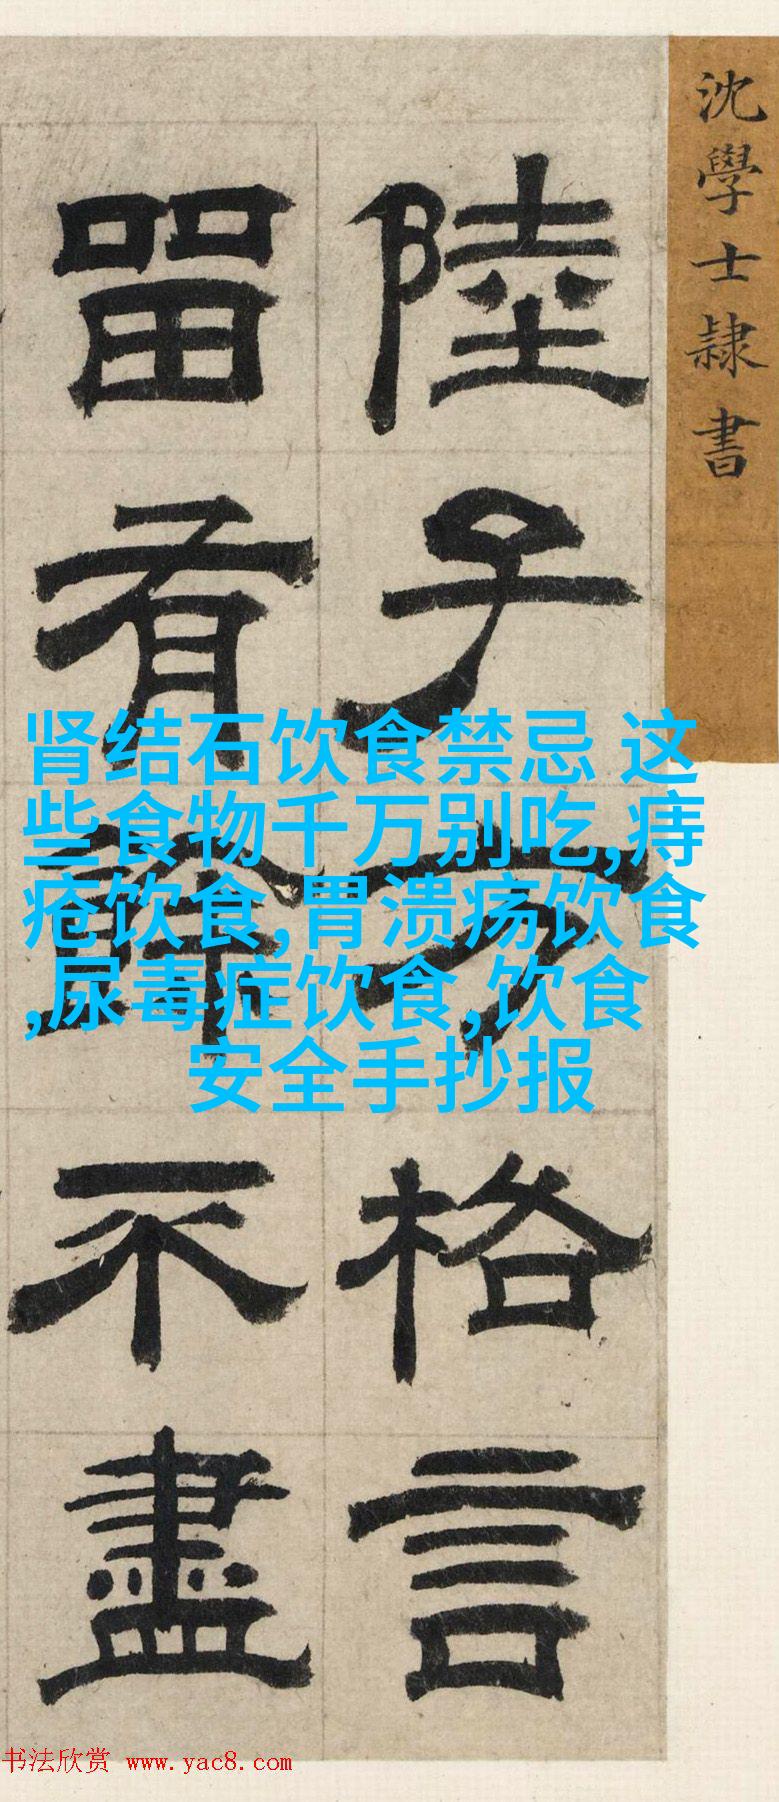 沈學士隸書
陸子方格言
留有餘不盡
肾结石饮食禁忌 这
些食物千万别吃,痔
疮饮食,胃溃疡饮食
,尿毒症饮食,饮食
安全手抄报
书法欣赏 www.yac8.com